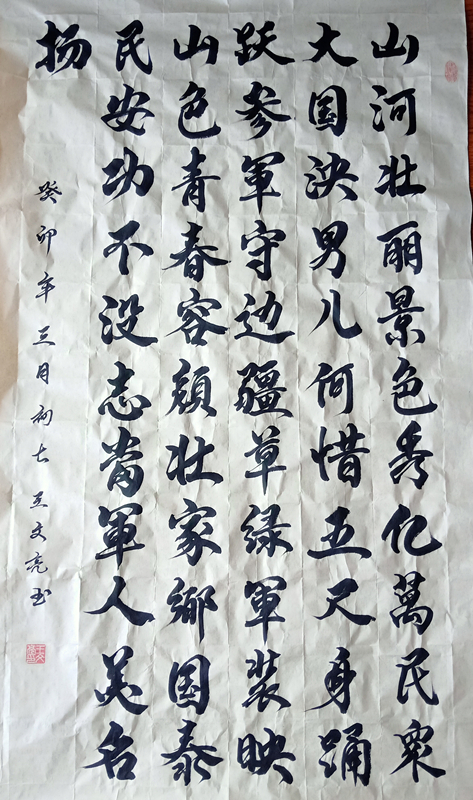 山河壮丽景色秀亿萬民衆
大国泱男儿何惜五尺身踊
跃参軍守边疆草绿軍装映
山色青春容颜壮家鄉国泰
民安功不没志当軍人美名
扬
癸卯年三月初七王文亮书